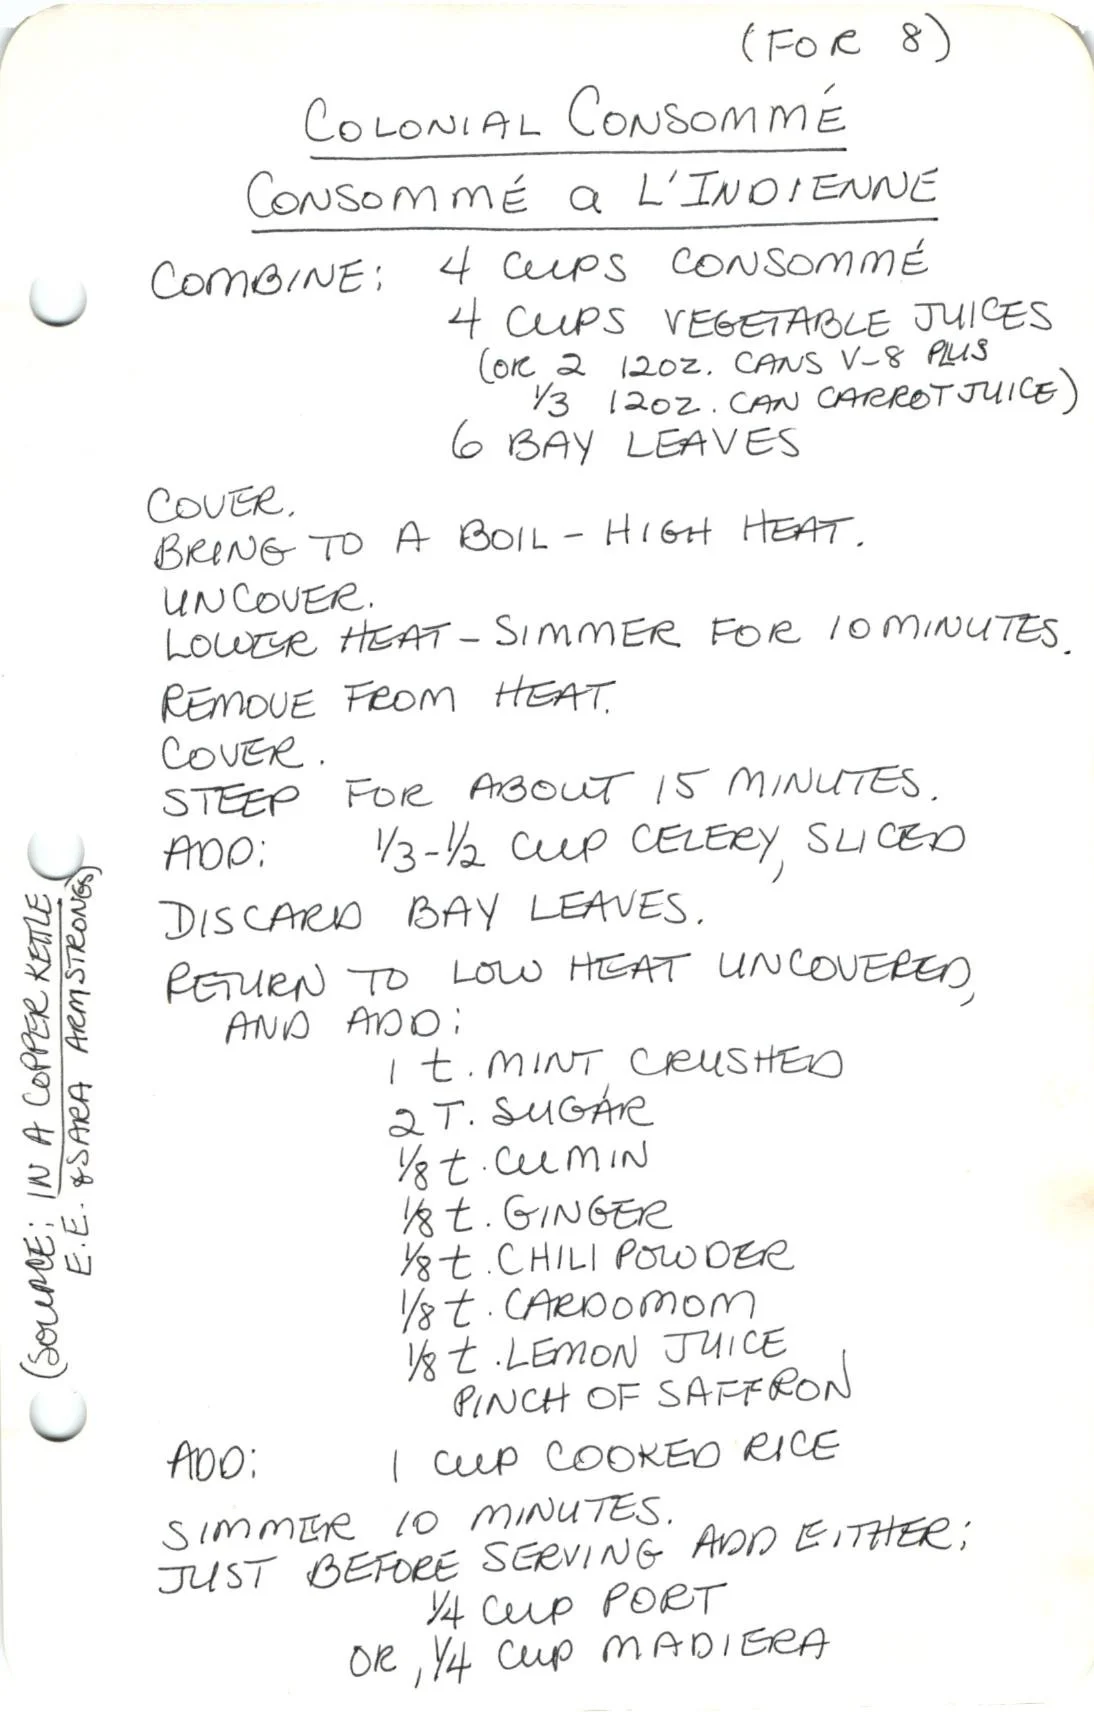 (FOR 8)
COLONIAL CONSOMMÉ
CONSOMMÉ a L'INDIENNE
COMBINE: 4 CUPS CONSOMMÉ
4 CUPS VEGETABLE JUICES
(OR 2 12OZ. CANS V-8 PLUS
1/3 12OZ. CAN CARROT JUICE)
6 BAY LEAVES
COVER.
BRING TO A BOIL - HIGH HEAT.
UNCOVER.
LOWER HEAT - SIMMER FOR 10 MINUTES.
REMOVE FROM HEAT.
COVER.
STEEP FOR ABOUT 15 MINUTES.
ADD: 1/3-1/2 CUP CELERY, SLICED
DISCARD BAY LEAVES.
RETURN TO LOW HEAT UNCOVERED,
AND ADD:
1 t. MINT CRUSHED
2 T. SUGAR
1/8 t. CUMIN
1/8 t. GINGER
1/8 t. CHILI POWDER
1/8 t. CARDOMOM
1/8 t. LEMON JUICE
PINCH OF SAFFRON
ADD: 1 CUP COOKED RICE
SIMMER 10 MINUTES.
JUST BEFORE SERVING ADD EITHER:
1/4 CUP PORT
OR, 1/4 CUP MADIERA
(SOURCE: IN A COPPER KETTLE
E.E. & SARA ARMSTRONG)